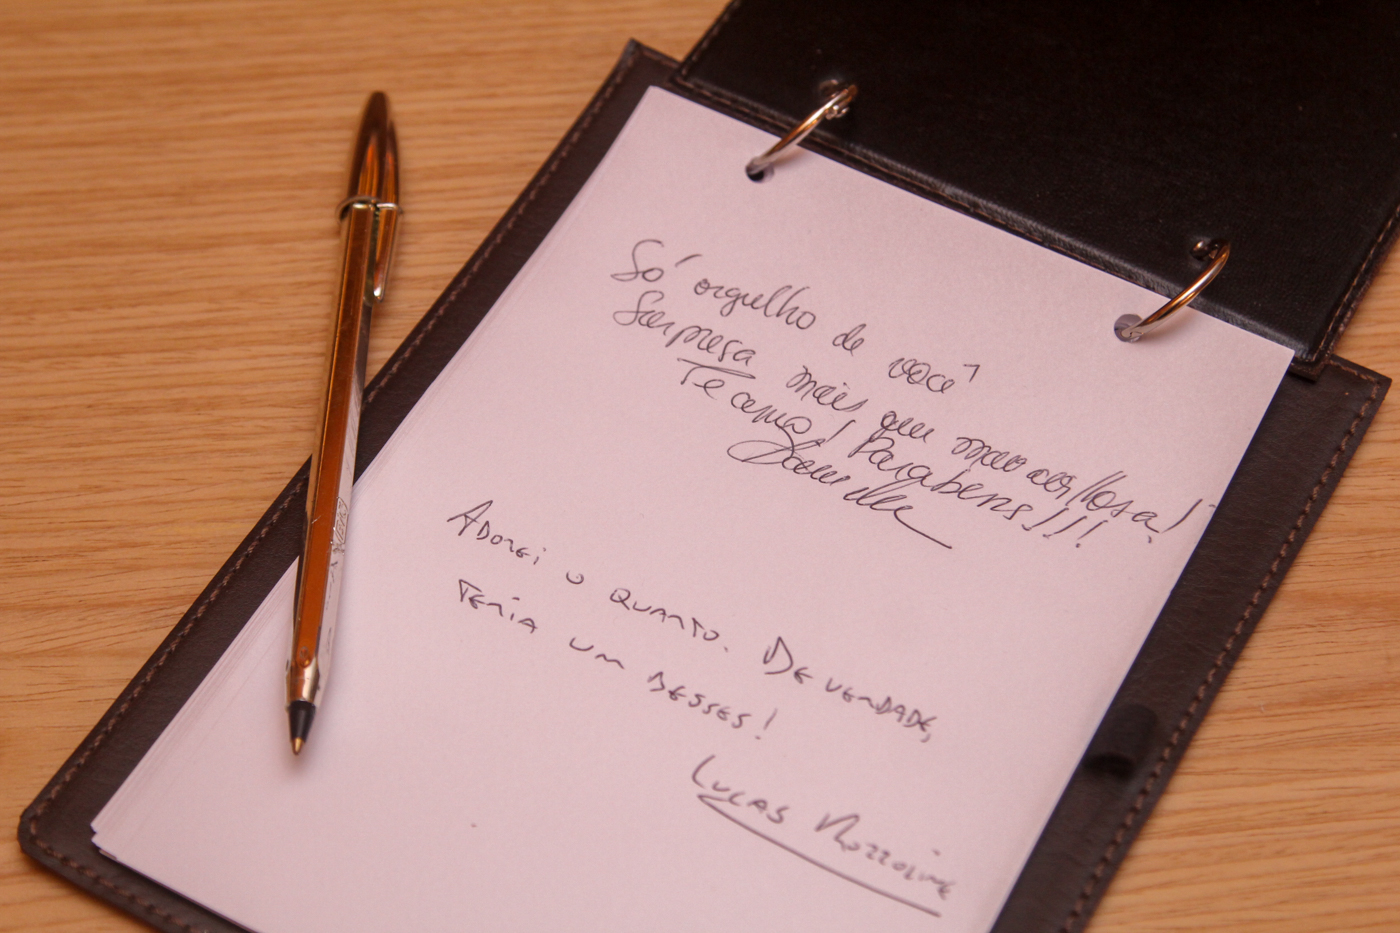 Só orgulho de você
Surpresa mais que maravilhosa!
Te amo! Parabéns!!!
ADOREI O QUARTO. DE VERDADE,
TERIA UM DESSES!
LUCAS